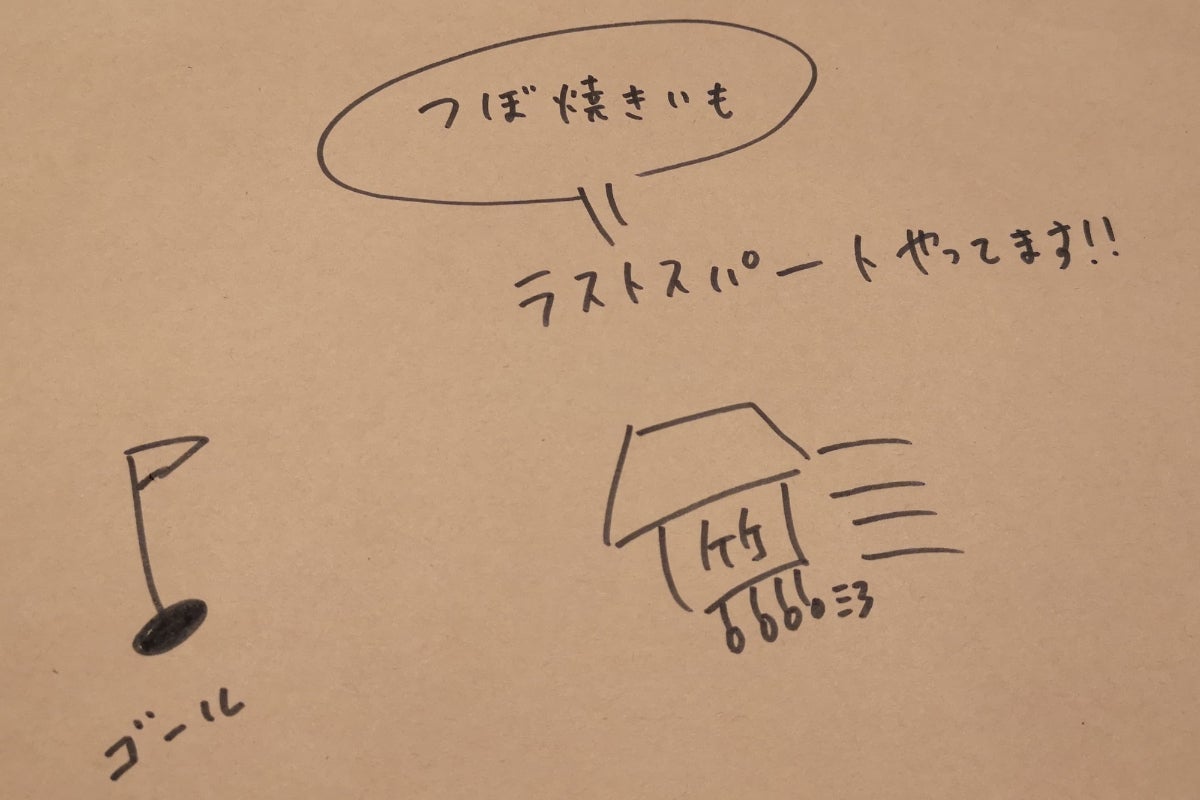 つぼ焼きいも
ラストスパートやってます!!
竹
ゴール